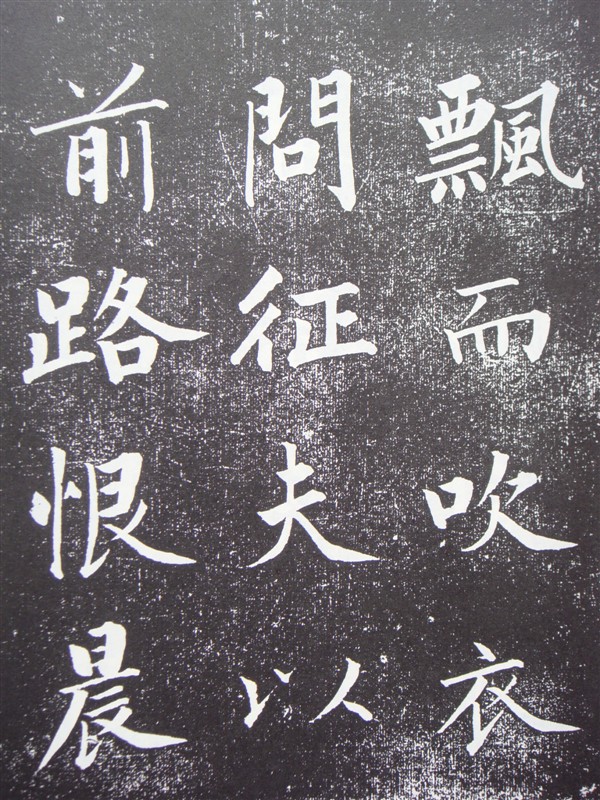 飄而吹衣
問征夫以
前路恨晨